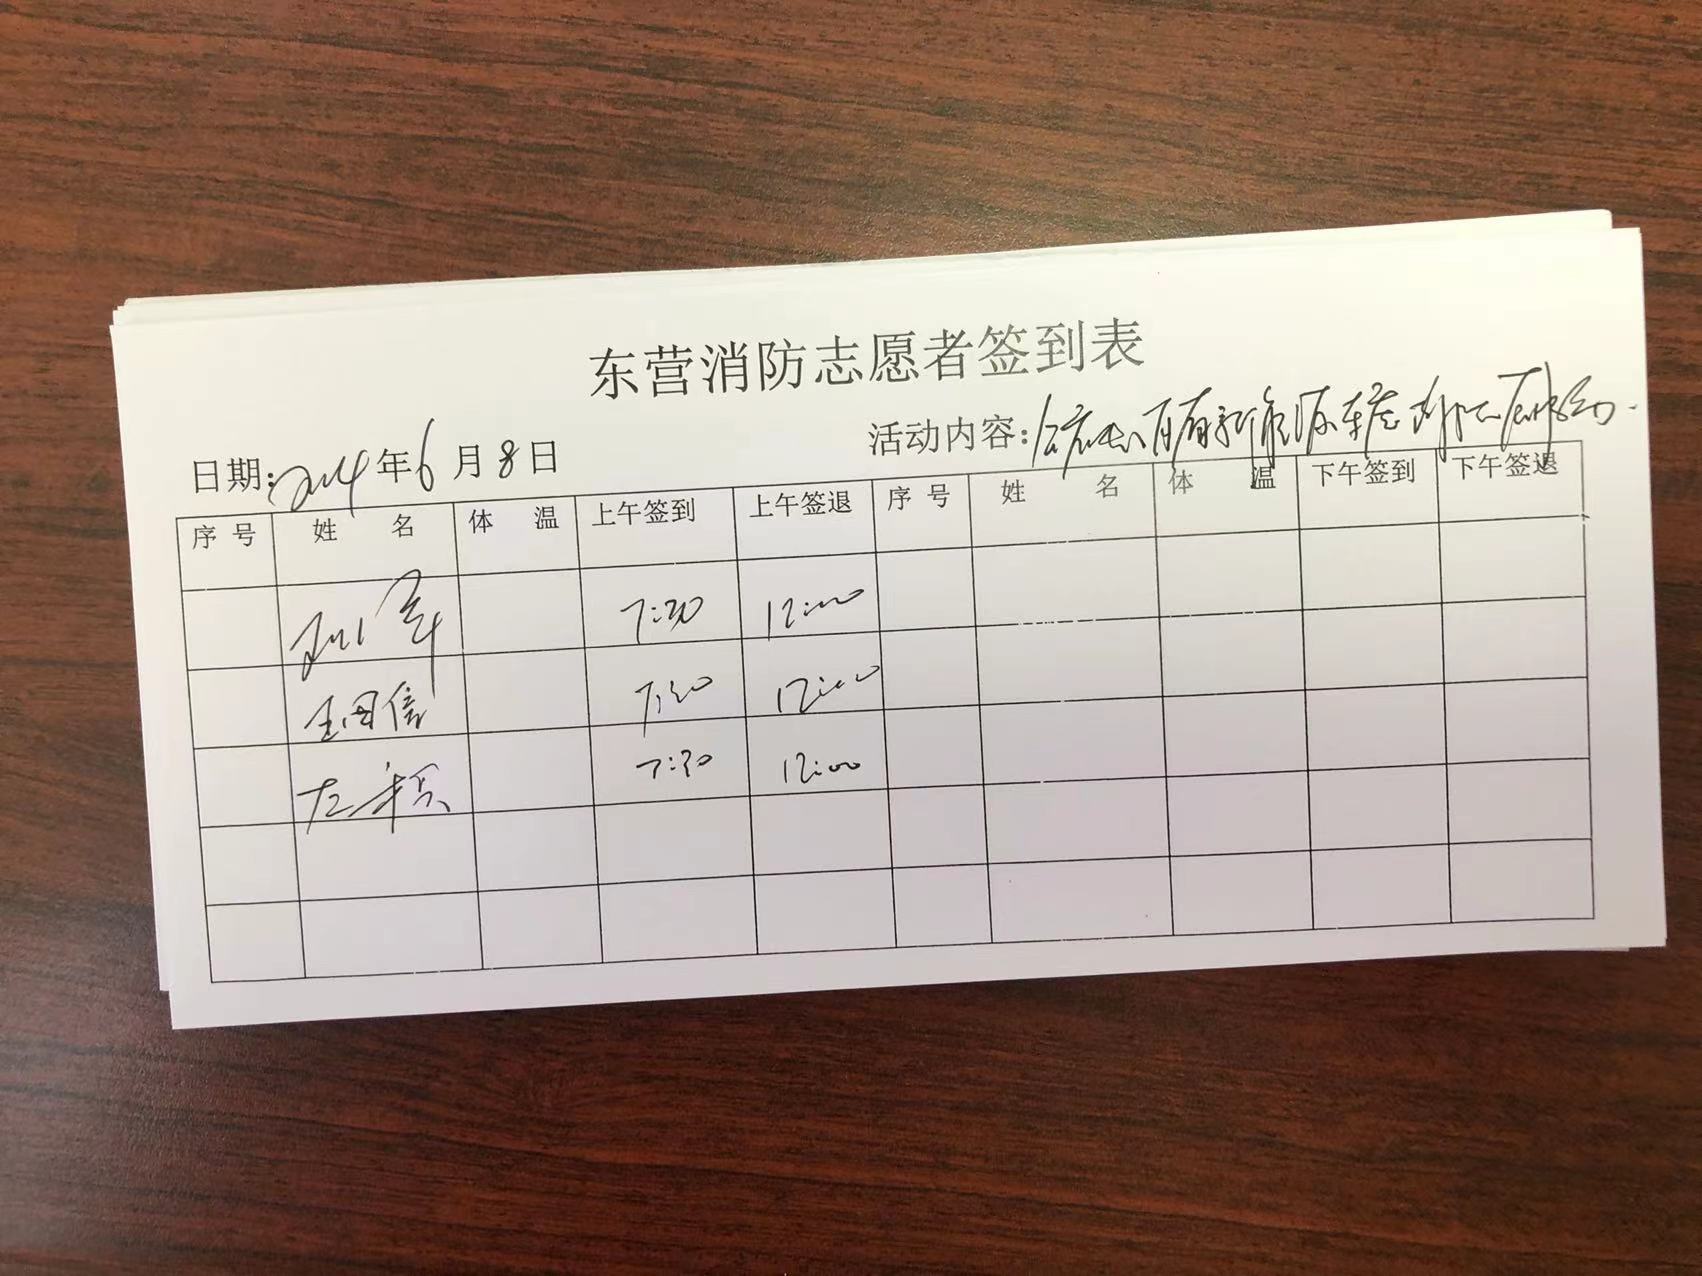 东营消防志愿者签到表
日期: 2024 年 6 月 8 日 活动内容:
序号 姓名 体温 上午签到 上午签退 序号 姓名 体温 下午签到 下午签退
7:30 12:00
王国信 7:30 12:00
7:30 12:00